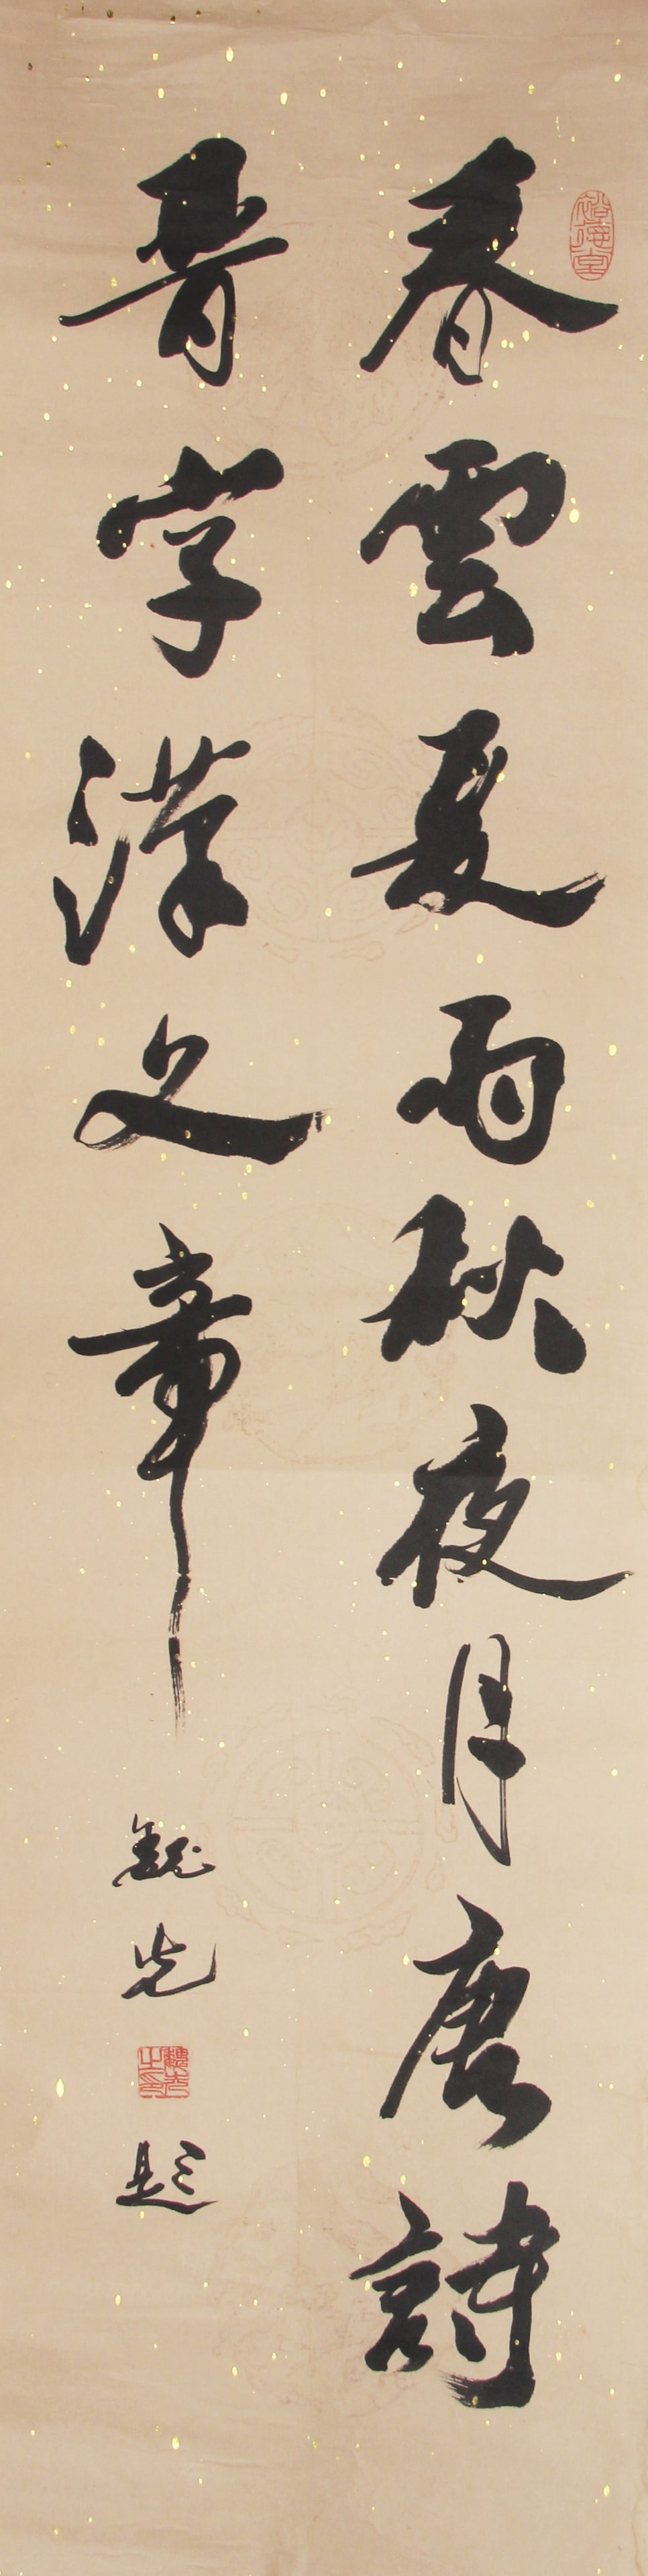 春雲夏雨秋夜月唐詩
晉字漢文章
魏光題